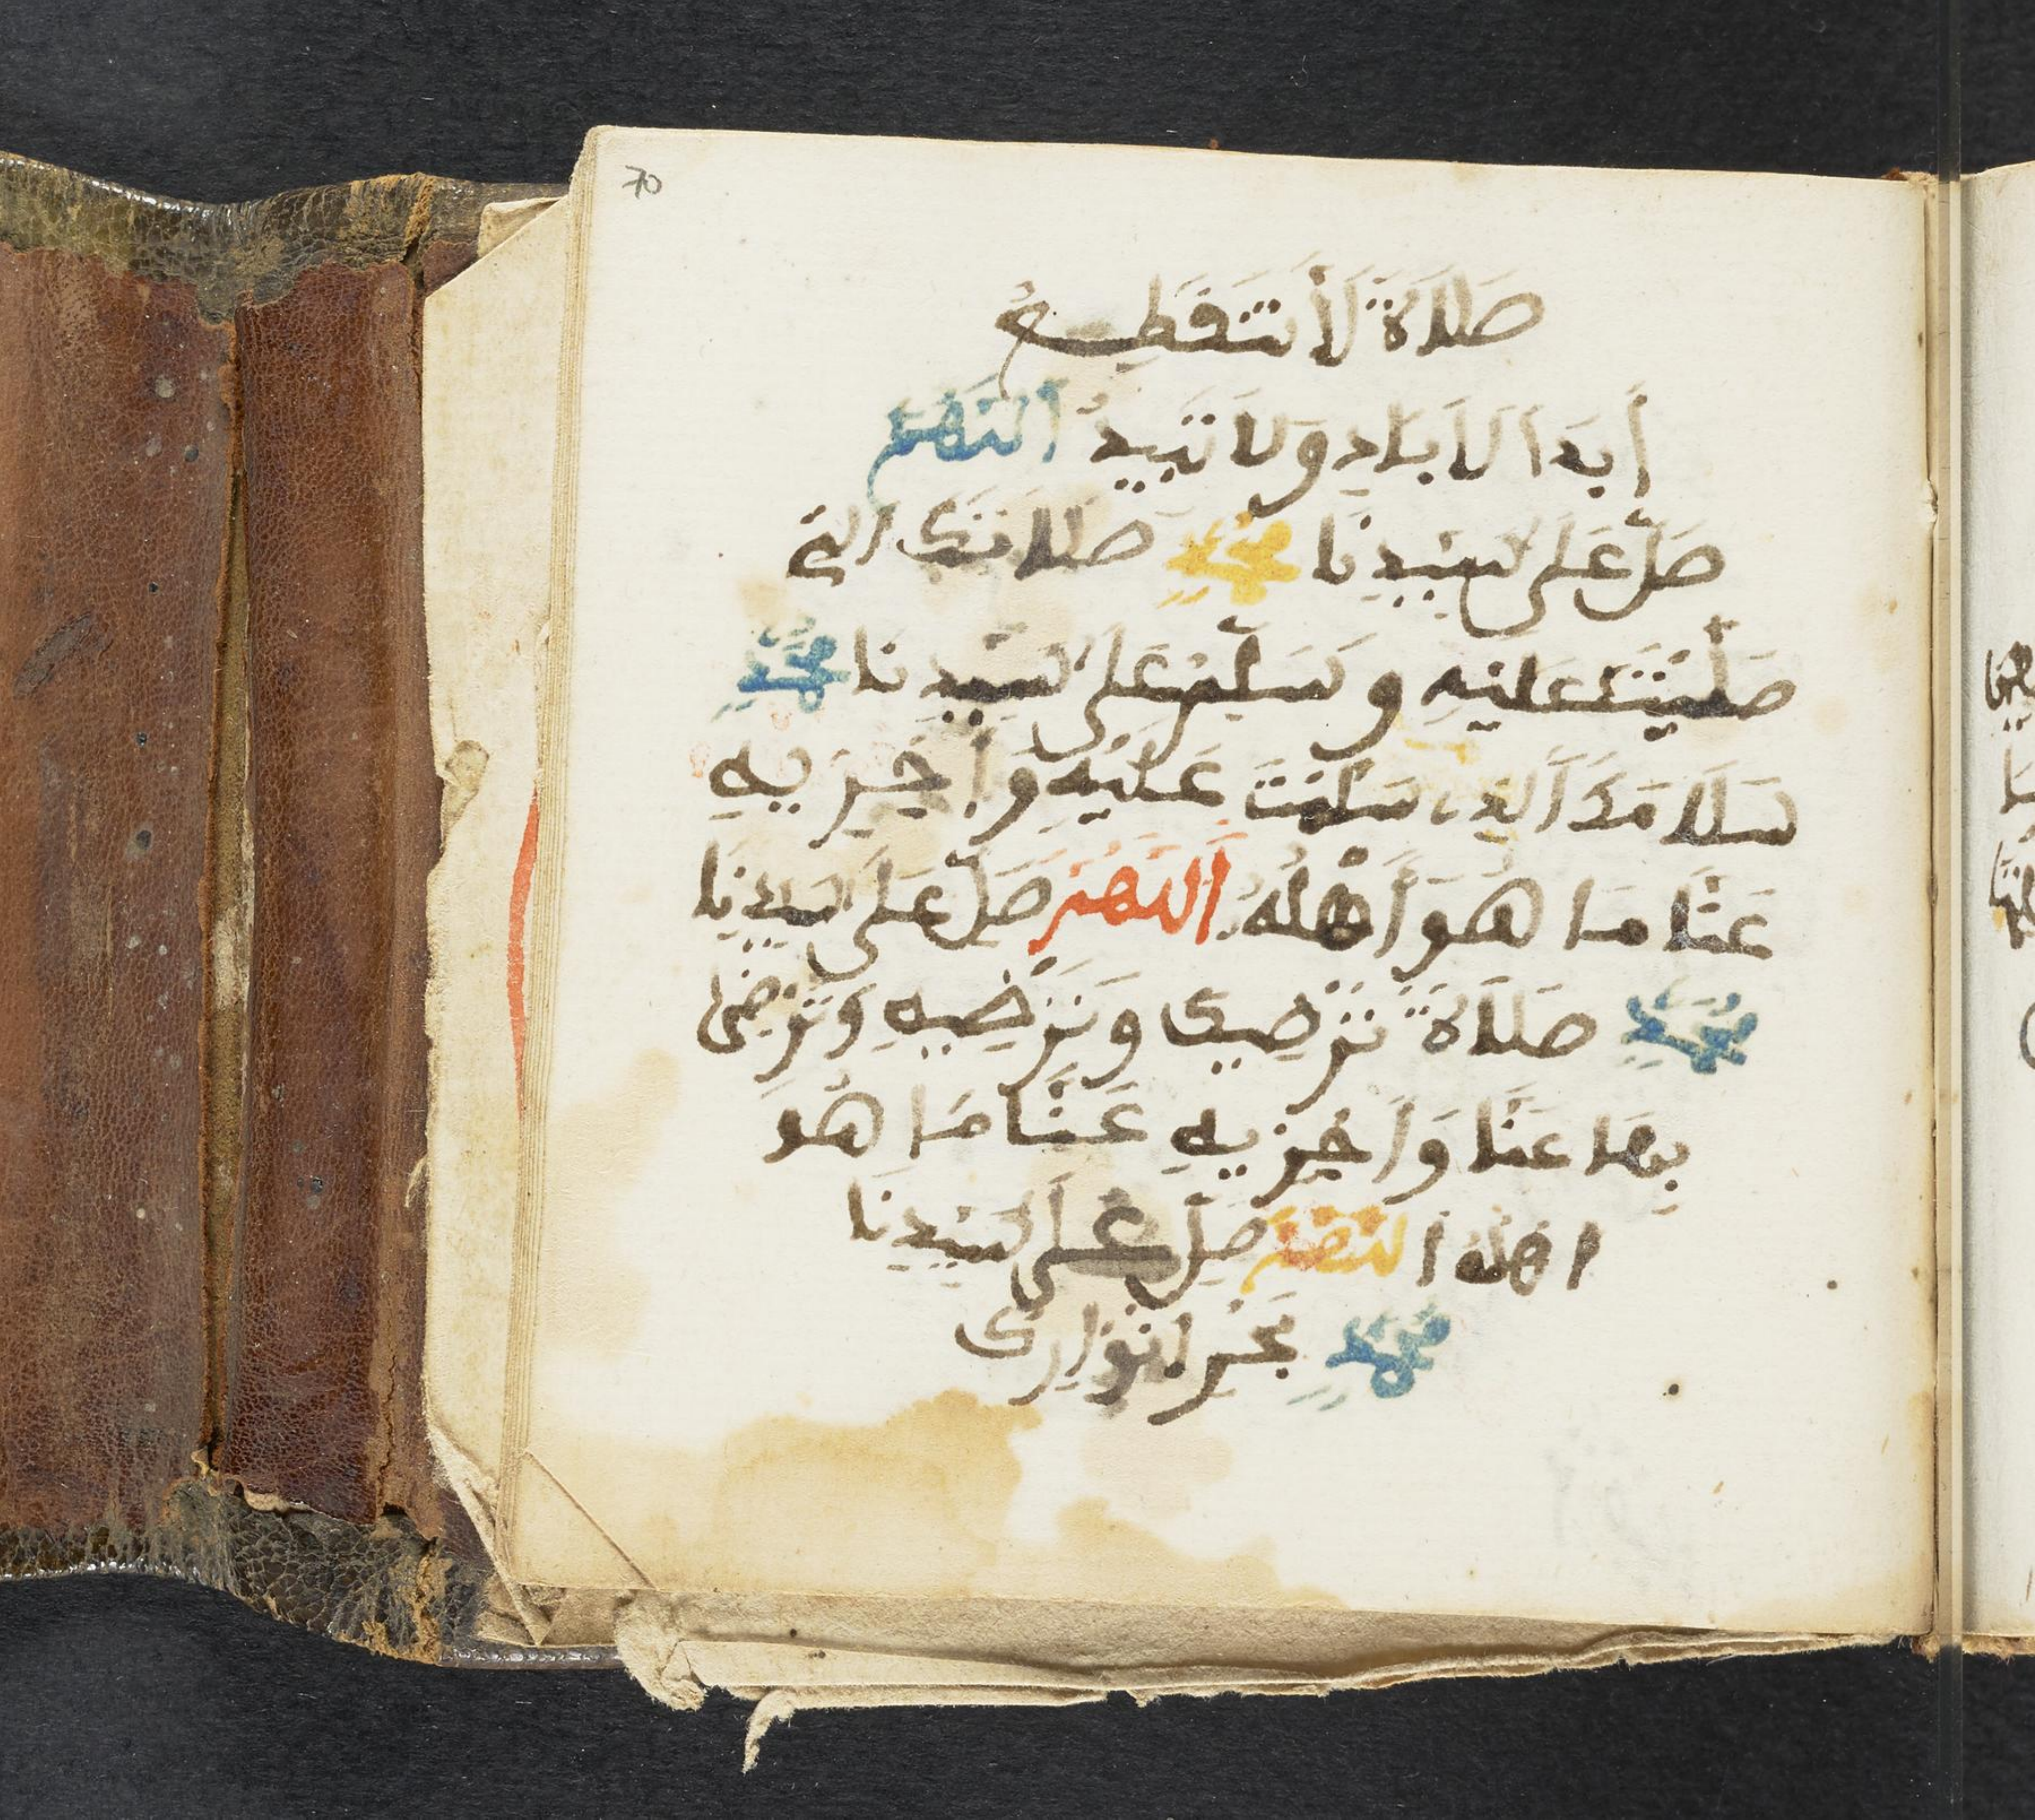 70
صَلَاةً لَا تَنقَطِعُ
أَبَدَ الْاَبَادِ وَلَا تَبِيدُ اَللَّهُمَّ
صَلِّ عَلَى سَيِّدِنَا مُحَمَّدٍ صَلَاتَكَ التِي
صَلَّيْتَ عَلَيْهِ وَسَلِّمْ عَلَى سَيِّدِنَا مُحَمَّدٍ
سَلَامَكَ اَلذِي سَلَّمْتَ عَلَيْهِ وَاَجْزِيهِ
عَنَّا مَا هُوَ أَهْلُهُ اَللَّهُمَّ صَلِّ عَلَى سَيِّدِنَا
مُحَمَّدٍ صَلَاةً تُرْضِيكَ وَتُرْضِيهِ وَتَرْضَى
بِهَا عَنَّا وَاَجْزِيهِ عَنَّا مَا هُوَ
اهْلُهُ اللَّهُمَّ صَلِّ عَلَى سَيِّدِنَا
مُحَمَّدٍ بَحْرِ انْوَارِكَ